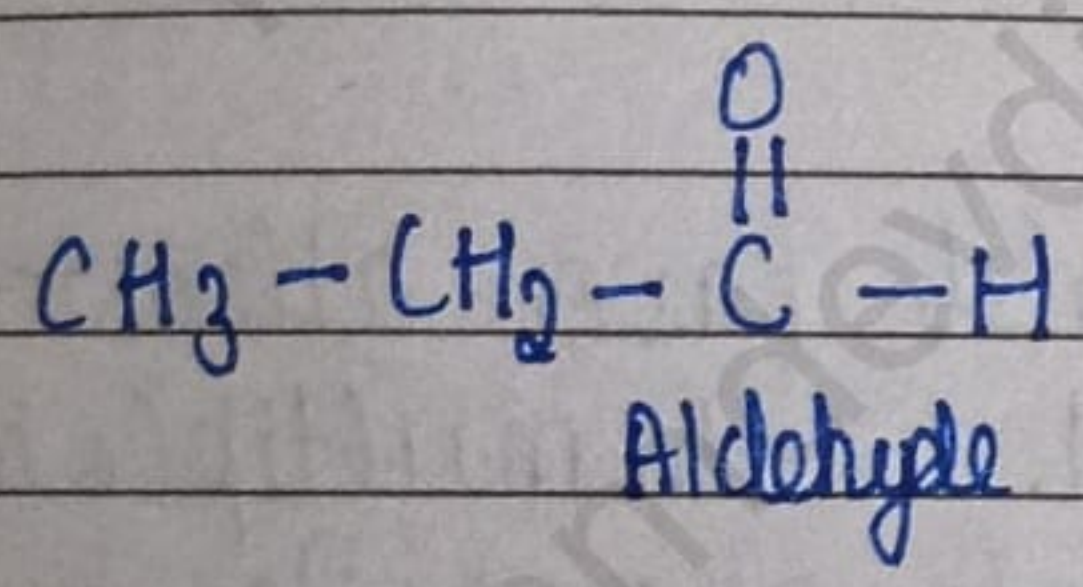 O
||
CH3 - CH2 - C - H
Aldehyde